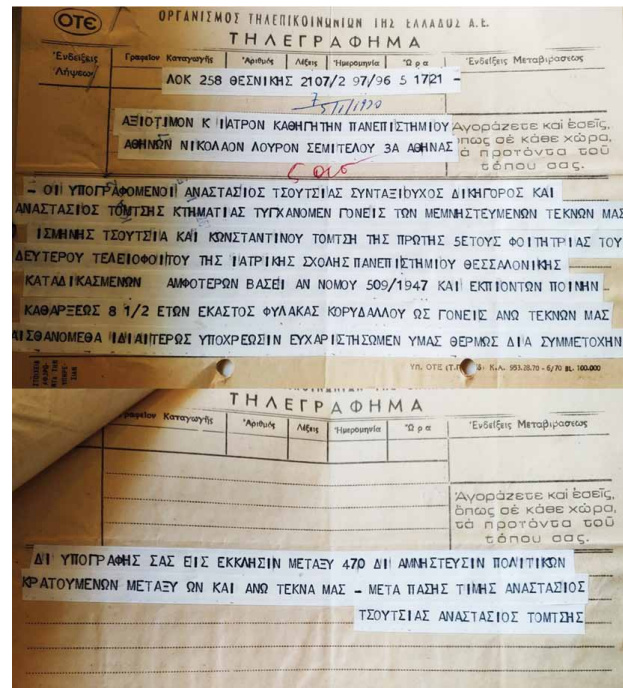 ΟΤΕ
ΟΡΓΑΝΙΣΜΟΣ ΤΗΛΕΠΙΚΟΙΝΩΝΙΩΝ ΤΗΣ ΕΛΛΑΔΟΣ Α.Ε.
ΤΗΛΕΓΡΑΦΗΜΑ
Ἐνδείξεις Λήψεως
Γραφεῖον Καταγωγῆς Ἀριθμός Λέξεις Ἡμερομηνία Ὥρα
Ἐνδείξεις Μεταβιβάσεως
ΛΟΚ 258 ΘΕΣΝΙΚΗΣ 2107/2 97/96 5 1721 -
ΑΞΙΟΤΙΜΟΝ Κ ΙΑΤΡΟΝ ΚΑΘΗΓΗΤΗΝ ΠΑΝΕΠΙΣΤΗΜΙΟΥ
ΑΘΗΝΩΝ ΝΙΚΟΛΑΟΝ ΛΟΥΡΟΝ ΣΕΜΙΤΕΛΟΥ 3Α ΑΘΗΝΑΣ
Ἀγοράζετε καί ἐσεῖς,
ὅπως σέ κάθε χώρα,
τά προτόντα τοῦ
τόπου σας.
- ΟΙ ΥΠΟΓΡΑΦΟΜΕΝΟΙ ΑΝΑΣΤΑΣΙΟΣ ΤΣΟΥΤΣΙΑΣ ΣΥΝΤΑΞΙΟΥΧΟΣ ΔΙΚΗΓΟΡΟΣ ΚΑΙ
ΑΝΑΣΤΑΣΙΟΣ ΤΟΜΤΣΗΣ ΚΤΗΜΑΤΙΑΣ ΤΥΓΧΑΝΟΜΕΝ ΓΟΝΕΙΣ ΤΩΝ ΜΕΜΝΗΣΤΕΥΜΕΝΩΝ ΤΕΚΝΩΝ ΜΑΣ
ΙΣΜΗΝΗΣ ΤΣΟΥΤΣΙΑ ΚΑΙ ΚΩΝΣΤΑΝΤΙΝΟΥ ΤΟΜΤΣΗ ΤΗΣ ΠΡΩΤΗΣ 5ΕΤΟΥΣ ΦΟΙΤΗΤΡΙΑΣ ΤΟΥ
ΔΕΥΤΕΡΟΥ ΤΕΛΕΙΟΦΟΙΤΟΥ ΤΗΣ ΙΑΤΡΙΚΗΣ ΣΧΟΛΗΣ ΠΑΝΕΠΙΣΤΗΜΙΟΥ ΘΕΣΣΑΛΟΝΙΚΗΣ
ΚΑΤΑΔΙΚΑΣΜΕΝΩΝ ΑΜΦΟΤΕΡΩΝ ΒΑΣΕΙ ΑΝ ΝΟΜΟΥ 509/1947 ΚΑΙ ΕΚΠΙΟΝΤΩΝ ΠΟΙΝΗΝ -
ΚΑΘΑΡΞΕΩΣ 8 1/2 ΕΤΩΝ ΕΚΑΣΤΟΣ ΦΥΛΑΚΑΣ ΚΟΡΥΔΑΛΛΟΥ ΩΣ ΓΟΝΕΙΣ ΑΝΩ ΤΕΚΝΩΝ ΜΑΣ
ΑΙΣΘΑΝΟΜΕΘΑ ΙΔΙΑΙΤΕΡΩΣ ΥΠΟΧΡΕΩΣΙΝ ΕΥΧΑΡΙΣΤΗΣΩΜΕΝ ΥΜΑΣ ΘΕΡΜΩΣ ΔΙΑ ΣΥΜΜΕΤΟΧΗΝ
ΤΗΛΕΓΡΑΦΗΜΑ
Γραφεῖον Καταγωγῆς Ἀριθμός Λέξεις Ἡμερομηνία Ὥρα
Ἐνδείξεις Μεταβιβάσεως
Ἀγοράζετε καί ἐσεῖς,
ὅπως σέ κάθε χώρα,
τά προτόντα τοῦ
τόπου σας.
ΔΙ ΥΠΟΓΡΑΦΗΣ ΣΑΣ ΕΙΣ ΕΚΚΛΗΣΙΝ ΜΕΤΑΞΥ 470 ΔΙ ΑΜΝΗΣΤΕΥΣΙΝ ΠΟΛΙΤΙΚΩΝ
ΚΡΑΤΟΥΜΕΝΩΝ ΜΕΤΑΞΥ ΩΝ ΚΑΙ ΑΝΩ ΤΕΚΝΑ ΜΑΣ - ΜΕΤΑ ΠΑΣΗΣ ΤΙΜΗΣ ΑΝΑΣΤΑΣΙΟΣ
ΤΣΟΥΤΣΙΑΣ ΑΝΑΣΤΑΣΙΟΣ ΤΟΜΤΣΗΣ